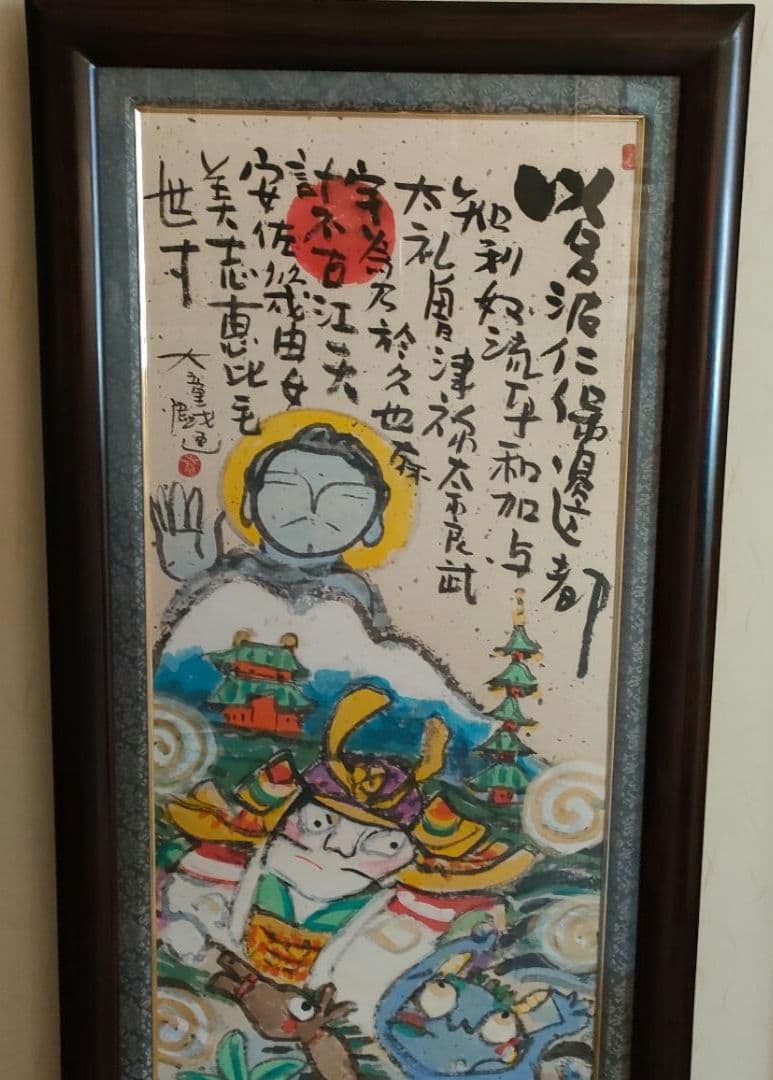 以呂波仁保邊都
知利奴流乎和加与
太礼曽津祢奈良武
宇為乃於久也麻
計不古江天
安佐伎由女
美志恵比毛
世寸
大童